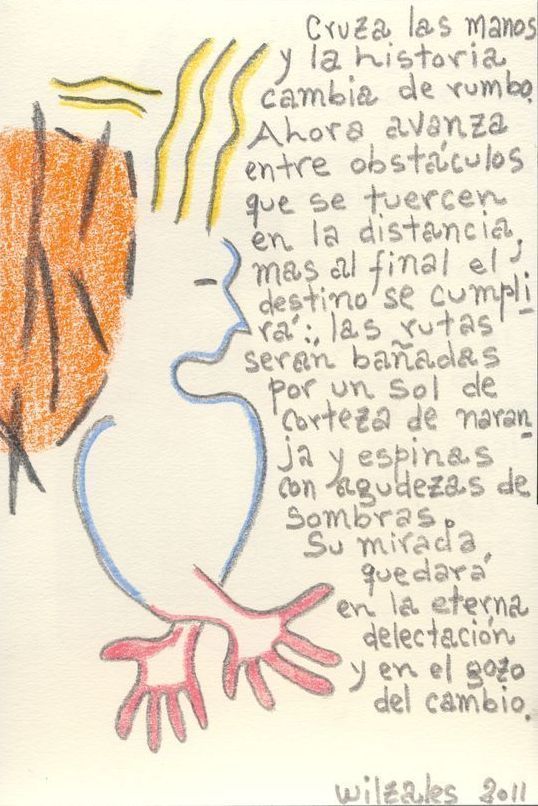 Cruza las manos
y la historia
cambia de rumbo.
Ahora avanza
entre obstáculos
que se tuercen
en la distancia,
mas al final el
destino se cumpli-
rá: las rutas
serán bañadas
por un sol de
corteza de naran-
ja y espinas
con agudezas de
sombras.
Su mirada
quedará
en la eterna
delectación
y en el gozo
del cambio.
wilzales 2011